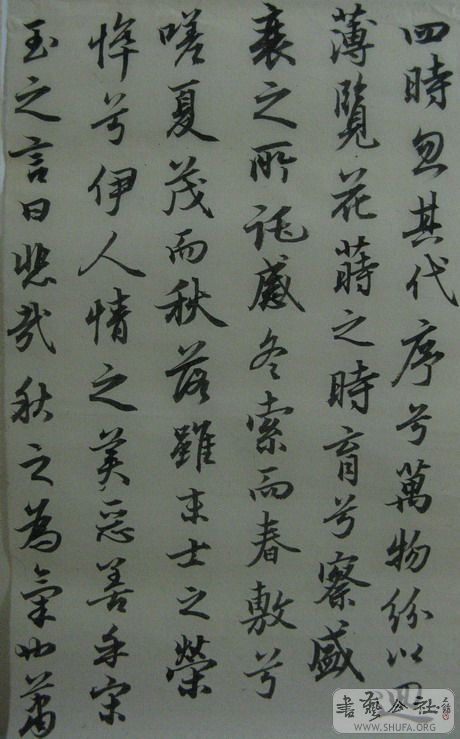 四時忽其代序兮萬物紛以迴
薄覽花蒔之時育兮察盛
衰之所託感冬索而春敷兮
嗟夏茂而秋落雖末士之榮
悴兮伊人情之美惡善乎宋
玉之言曰悲哉秋之為氣也蕭
書藝公社
WWW.SHUFA.ORG